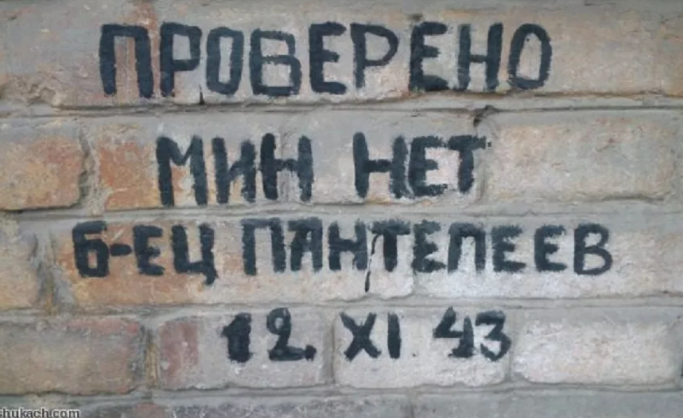 ПРОВЕРЕНО
МИН НЕТ
Б-ЕЦ ПАНТЕЛЕЕВ
12. XI 43
hukach.com